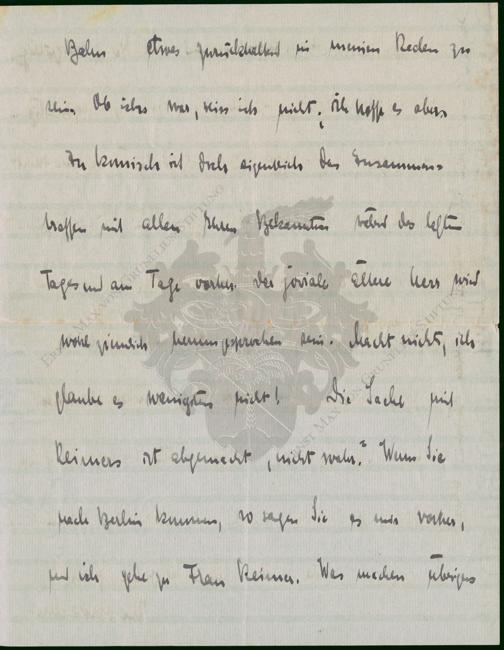 Bahn etwas zurückhaltend in meinen Reden zu
sein. Ob ichs war, weiss ich nicht; ich hoffe es aber.
Zu komisch ist doch eigentlich das Zusammen-
treffen mit allen Ihren Bekannten des letzten
Tages und am Tage vorher. Der joviale Ältere Herr wird
wohl ziemlich herumgesprochen sein. Macht nicht, ich
glaube es wenigstens nicht! Die Sache mit
Reimers ist abgemacht, nicht wahr? Wenn Sie
nach Berlin kommen, so sagen Sie es mir vorher,
und ich gehe zu Frau Reimer. Was machen übrigens
ERNST MAX VON GRUNELIUS-STIFTUNG
ERNST MAX VON GRUNELIUS-STIFTUNG